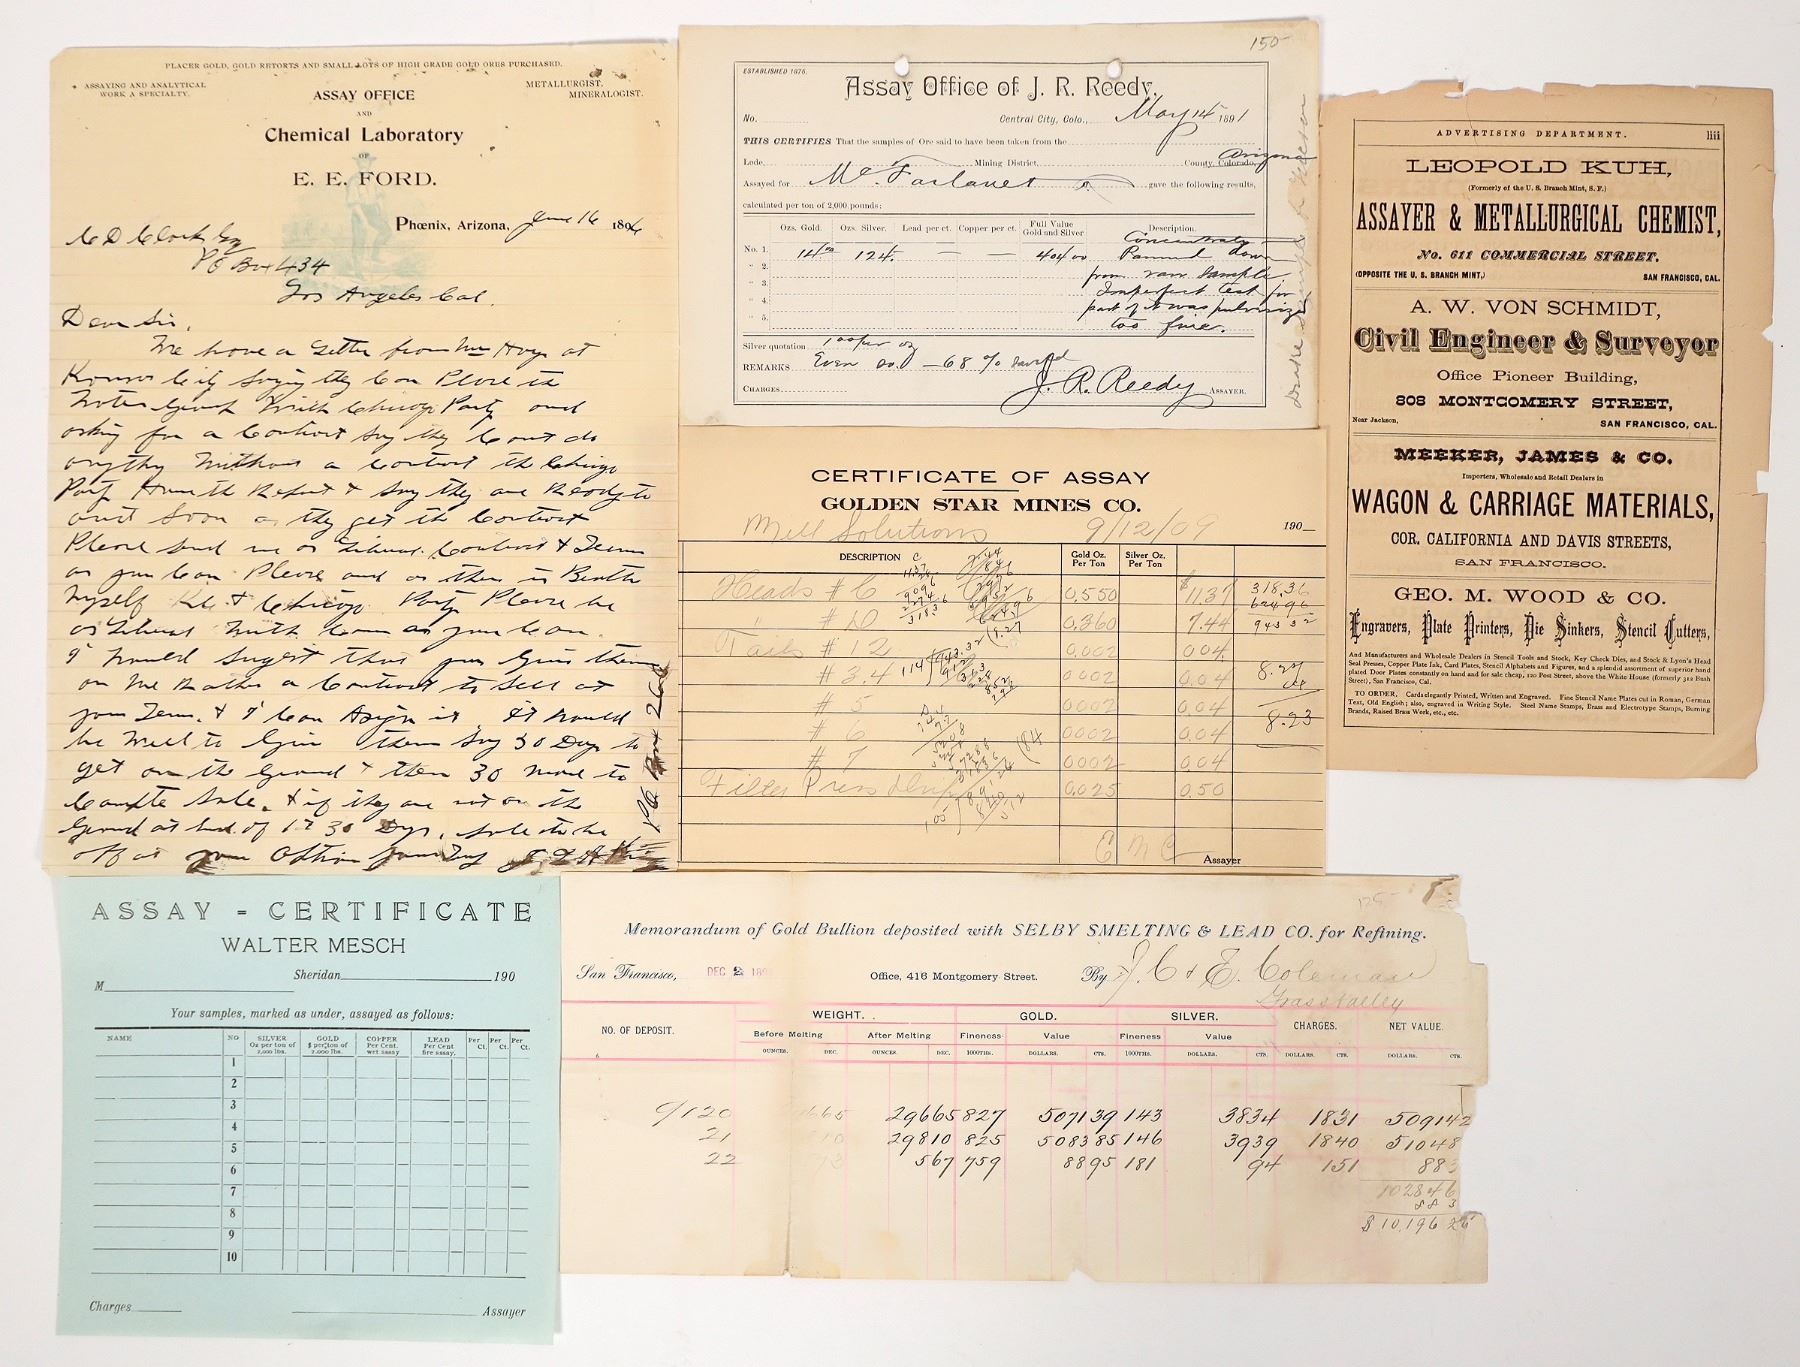 PLACER GOLD, GOLD RETORTS AND SMALL LOTS OF HIGH GRADE GOLD ORES PURCHASED.
ASSAYING AND ANALYTICAL
WORK A SPECIALTY.
METALLURGIST,
MINERALOGIST.
ASSAY OFFICE
AND
Chemical Laboratory
OF
E. E. FORD.
Phœnix, Arizona, June 16 189
C D Clark Esq
PO Box 434
Los Angeles Cal.
Dear Sir,
We have a Letter from Mr Hays at
Kansas City Saying they Can Place the
with Chicago Party and
asking for a Contract Say they Cant do
anything without a Contract the Chicago
Party Have the Report & Say they are Ready to
visit Soon as they get the Contract
Please Send me as Liberal Contract & Terms
as you Can Please and as there is Both
Myself & Chicago Party Please be
as Liberal with them as you Can.
I Would Suggest that you Give them
or Me Rather a Contract to Sell at
your Terms & I Can Assign it. It Would
be Well to Give them Say 30 Days to
get on the Ground & then 30 more to
Complete Sale. & if they are not on the
Ground at End of 1st 30 Days, Sale to be
off at your Option Yours Truly
PO Box 266
150
ESTABLISHED 1876.
Assay Office of J. R. Reedy.
No.
Central City, Colo., May 14 1891
THIS CERTIFIES That the samples of Ore said to have been taken from the
Lode, Mining District, County, Colorado, Arizona
Assayed for McFarlane gave the following results,
calculated per ton of 2,000 pounds:
Ozs. Gold. Ozs. Silver. Lead per ct. Copper per ct. Full Value Gold and Silver Description.
No. 1. 14 124. — — 404 00 Concentrates
" 2. Panned down
" 3. from raw Sample
" 4. Imperfect test for
" 5. part of it was pulverized
too fine.
Silver quotation 1 00 per oz
REMARKS Even — 68 % saved
CHARGES J. R. Reedy ASSAYER.
CERTIFICATE OF ASSAY
GOLDEN STAR MINES CO.
Mill Solutions 9/12/09 190
DESCRIPTION Gold Oz. Per Ton Silver Oz. Per Ton
Heads # 6 0.550 $11.37 318.36
624 96
# 10 0.360 7.44 943 32
Tails # 2 0.002 0.04
# 3.4 0002 0.04 8.27
04
# 5 0002 0.04 8.23
# 6 0002 0.04
# 7 0002 0.04
Filter Press 0.025 0.50
E M C Assayer
ADVERTISING DEPARTMENT. liii
LEOPOLD KUH,
(Formerly of the U. S. Branch Mint, S. F.)
ASSAYER & METALLURGICAL CHEMIST,
No. 611 COMMERCIAL STREET.
(OPPOSITE THE U. S. BRANCH MINT,) SAN FRANCISCO, CAL.
A. W. VON SCHMIDT,
Civil Engineer & Surveyor
Office Pioneer Building,
808 MONTGOMERY STREET,
Near Jackson, SAN FRANCISCO, CAL.
MEEKER, JAMES & CO.
Importers, Wholesale and Retail Dealers in
WAGON & CARRIAGE MATERIALS,
COR. CALIFORNIA AND DAVIS STREETS,
SAN FRANCISCO.
GEO. M. WOOD & CO.
Engravers, Plate Printers, Die Sinkers, Stencil Cutters,
And Manufacturers and Wholesale Dealers in Stencil Tools and Stock, Key Check Dies, and Stock & Lyon's Head
Seal Presses, Copper Plate Ink, Card Plates, Stencil Alphabets and Figures, and a splendid assortment of superior hand
plated Door Plates constantly on hand and for sale cheap, 120 Post Street, above the White House (formerly 312 Bush
Street), San Francisco, Cal.
TO ORDER, Cards elegantly Printed, Written and Engraved. Fine Stencil Name Plates cut in Roman, German
Text, Old English; also, engraved in Writing Style. Steel Name Stamps, Brass and Electrotype Stamps, Burning
Brands, Raised Brass Work, etc., etc.
ASSAY - CERTIFICATE
WALTER MESCH
Sheridan 190
M
Your samples, marked as under, assayed as follows:
NAME NO SILVER Oz per ton of 2,000 lbs. GOLD $ per ton of 2,000 lbs. COPPER Per Cent. wet assay LEAD Per Cent fire assay. Per Ct. Per Ct. Per Ct.
1
2
3
4
5
6
7
8
9
10
Charges Assayer
125
Memorandum of Gold Bullion deposited with SELBY SMELTING & LEAD CO. for Refining.
San Francisco, DEC 2 189 Office, 416 Montgomery Street. By J. C & E. Coleman
Grass Valley
NO. OF DEPOSIT. WEIGHT. GOLD. SILVER. CHARGES. NET VALUE.
Before Melting After Melting Fineness Value Fineness Value
OUNCES. DEC. OUNCES. DEC. 1000THS. DOLLARS. CTS. 1000THS. DOLLARS. CTS. DOLLARS. CTS. DOLLARS. CTS.
9120 29665 827 507139 143 3834 1831 509142
21 29810 825 508385 146 3939 1840 51048
22 567 759 8895 181 94 151 883
102846
88 3
$ 10,196 26